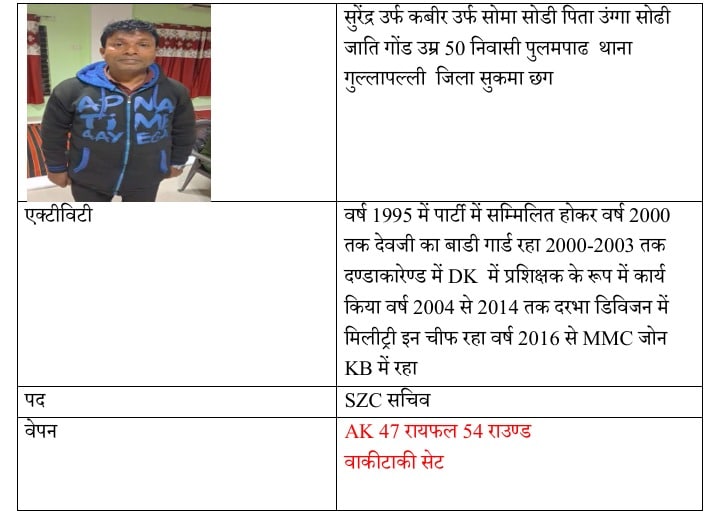 APNA
TiME
AAYEGA
सुरेंद्र उर्फ कबीर उर्फ सोमा सोडी पिता उंग्गा सोढी
जाति गोंड उम्र 50 निवासी पुलमपाढ थाना
गुल्लापल्ली जिला सुकमा छग
एक्टीविटी
वर्ष 1995 में पार्टी में सम्मिलित होकर वर्ष 2000
तक देवजी का बाडी गार्ड रहा 2000-2003 तक
दण्डाकारेण्ड में DK में प्रशिक्षक के रूप में कार्य
किया वर्ष 2004 से 2014 तक दरभा डिविजन में
मिलीट्री इन चीफ रहा वर्ष 2016 से MMC जोन
KB में रहा
पद
SZC सचिव
वेपन
AK 47 रायफल 54 राउण्ड
वाकीटाकी सेट